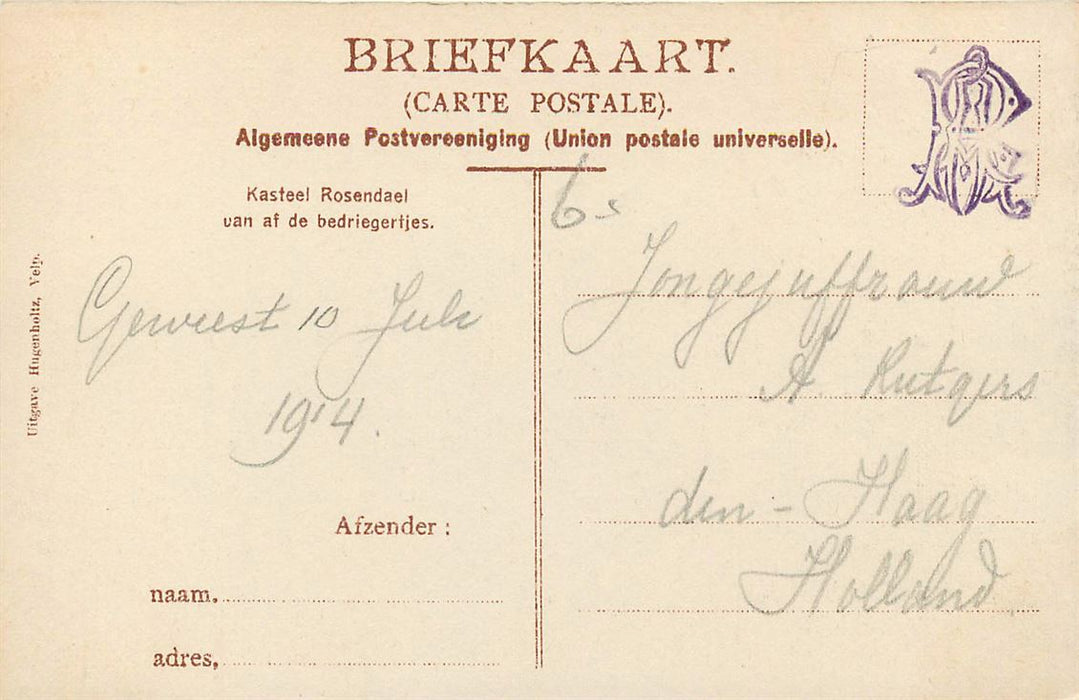 BRIEFKAART.
(CARTE POSTALE).
Algemeene Postvereeniging (Union postale universelle).
Kasteel Rosendael
van af de bedriegertjes.
Uitgave Hugenholtz, Velp.
Geweest 10 Juli
1914.
Afzender :
naam,
adres,
6-
Jongejuffrouw
A. Rutgers
den - Haag
Holland